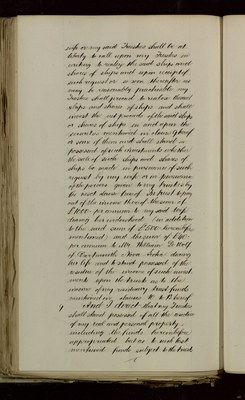 wife or my said Trustees shall be at
liberty to call upon my Trustees in
writing to realize the said ships and
shares of ships and upon receipt of
such request or so soon thereafter as
may be reasonably practicable my
Trustees shall proceed to realize the said
ships and shares of ships and shall
invest the net proceeds of the said ships
or shares of ships in and upon the
securities mentioned in clause hereof
or some of them and shall stand
possessed of such investments whether
the sale of such ships and shares of
ships be made in pursuance of such
request by my wife or in pursuance
of the powers given to my trustees by
the next clause hereof In trust upon
out of the income thereof the sum of
per annum to my said
during her widowhood (in addition
to the said sum of £500 hereinbefore
mentioned) and the sum of
per annum to Mrs William De Wolf
of Dartmouth Nova Scotia during
her life and to stand possessed of the
residue of the income of such invest
ments upon the trusts as to the
income of my residuary trust funds
mentioned in clauses to hereof
And I direct that my Trustees
shall stand possessed of all the residue
of my real and personal property,
including the funds hereinbefore
appropriated but as to such last
mentioned funds subject to the trusts